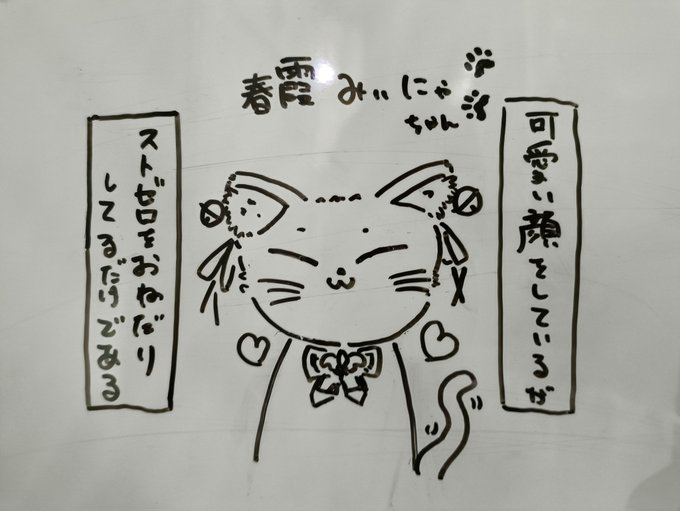 春霞 みぃにゃ
ちゃん
可愛い顔をしているが
ストゼロをおねだり
してるだけである